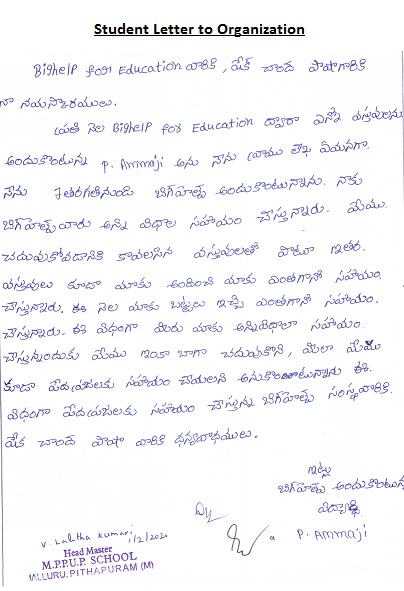 Student Letter to Organization
BigHelP for Education వారికి, షేక్ చాంద్ పాషాగారికి
నా నమస్కారములు.
ప్రతి నెల BigHelP for Education ద్వారా ఎన్నో వస్తువులను
అందుకొంటున్న P. Ammaji అను నేను వ్రాయు లేఖ ఏమనగా.
నేను 7తరగతినుండి బిగ్‌హెల్ప్ అందుకొంటున్నాను. నాకు
బిగ్‌హెల్ప్ వారు అన్ని విధాల సహాయం చేస్తున్నారు. మేము
చదువుకోవడానికి కావలసిన వస్తువులతో పాటూ ఇతర
వస్తువులు కూడా మాకు అందించి మాకు ఎంతగానో సహాయం
చేస్తున్నారు. ఈ నెల మాకు బట్టలు ఇచ్చి ఎంతగానో సహాయం
చేస్తున్నారు. ఈ విధంగా మీరు మాకు అన్నివిధాలా సహాయం
చేస్తున్నందుకు మేము ఇంకా బాగా చదువుకొని, మీలా మేము
కూడా పేదప్రజలకు సహాయం చేయలని అనుకొంటున్నాను ఈ
విధంగా పేదప్రజలకు సహాయం చేస్తున్న బిగ్‌హెల్ప్ సంస్థవారికి
షేక చాంద్ పాషా వారికి ధన్యవాదములు.
ఇట్లు
బిగ్‌హెల్ప్ అందుకొంటున్న
విద్యార్థి
P. Ammaji
V. Lalitha Kumari 1/2/2020
Head Master
M.P.P.U.P. SCHOOL
MALLURU, PITHAPURAM (M)